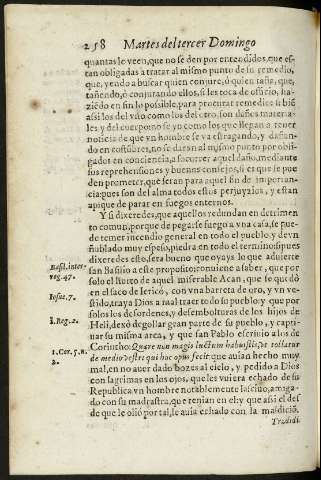 258 Martes del tercer Domingo
quantas le veen, que no se den por entendidos, que es-
tan obligadas a tratar al mismo punto de su remedio,
que, yendo a buscar quien conjure, ò quien taña, que,
tañendo, ò conjurando ellos, si les toca de oficio, ha-
ziẽdo en fin lo possible, para procurar remedio: si biẽ
assi los del vno como los del otro, son daños materia-
les y del cuerpo no se yo como los que llegan a tener
noticia de que vn hombre se va estragando, y dañan-
do en costũbres, no se daran al mismo punto por obli-
gados en conciencia, a socorrer aquel daño, mediante
sus reprehensiones y buenos consejos, si es que se pue-
den prometer, que seran para aquel fin de importan-
cia: pues son del alma todos estos perjuyzios, y estan
a pique de parar en fuegos eternos.
Y si dixeredes, que aquellos redundan en detrimen
to comun, porque de pegarse fuego a vna casa, se pue-
de temer incendio general en todo el pueblo. y de vn
ñublado muy espeso, piedra en todo el termino: si pues
dixeredes esto, sera bueno que oyays lo que aduierte
san Basilio a este proposito: conuiene a saber, que por
solo el hurto de aquel miserable Acan, que se quedò
en el saco de Iericò, con vna barreta de oro, y vn ve-
stido, traya Dios a mal traer todo su pueblo: y que por
solos los desordenes, y desembolturas de los hijos de
Heli, dexò degollar gran parte de su pueblo, y capti-
uar su misma arca, y que san Pablo escriuio a los de
Corintho: Quare non magis luctum habuistis, vt tollatur
de medio vestri qui hoc opus fecit que auian hecho muy
mal, en no auer dado bozes al cielo, y pedido a Dios
con lagrimas en los ojos, que les vuiera echado de su
Republica vn hombre notablemente lasciuo, amiga-
do con su madrastra, que tenian en el: y que assi el des
de que lo oliò por tal, le auia echado con la maldiciõ.
Tradidi
Basil. inter
rog. 47.
Iosue. 7.
1. Reg. 2.
1. Cor. 5. n.
2.